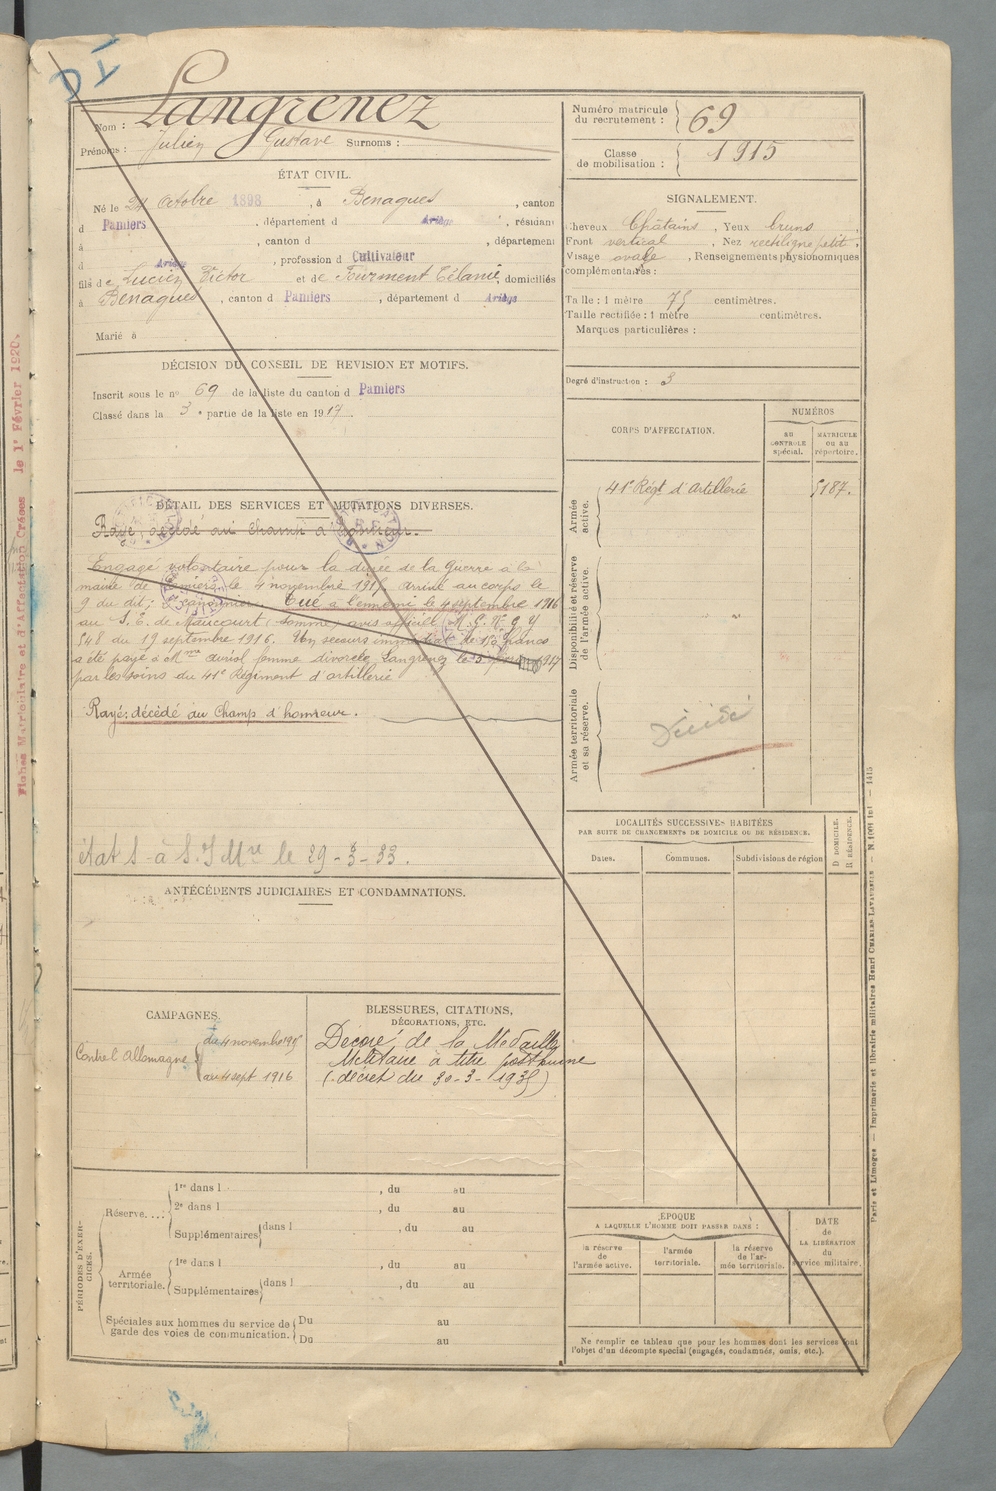 DI
Nom : Langrenez
Prénoms : Julien Gustave Surnoms :
ÉTAT CIVIL.
Né le 24 Octobre 1898, à Benagues, canton
d Pamiers, département d Ariège, résidant
à , canton d , département
d Ariège, profession d Cultivateur
fils de Lucien Victor et de Fourment Mélanie, domiciliés
à Benagues, canton d Pamiers, département d Ariège
Marié à
DÉCISION DU CONSEIL DE REVISION ET MOTIFS.
Inscrit sous le n° 69 de la liste du canton d Pamiers
Classé dans la 3e partie de la liste en 1917
DÉTAIL DES SERVICES ET MUTATIONS DIVERSES.
Rayé, décédé au champ d'honneur.
Engagé volontaire pour la durée de la Guerre à la
mairie de Pamiers le 4 novembre 1915 arrivé au corps le
9 du dit; 2e canonnier. Tué à l'ennemi le 4 septembre 1916
au S. E. de Maucourt (Somme) avis officiel M. G. H. G Y
548 du 19 septembre 1916. Un secours immédiat de 150 francs
a été payé à Mme Auriol femme divorcée Langrenez le 5 1917
par les soins du 41e Régiment d'artillerie
Rayé: décédé au Champ d'honneur.
état S à S. I Mre le 29-3-33.
ANTÉCÉDENTS JUDICIAIRES ET CONDAMNATIONS.
CAMPAGNES.
Contre l'Allemagne
du 4 novembre 1915
au 4 sept 1916
BLESSURES, CITATIONS,
DÉCORATIONS, ETC.
Décoré de la Médaille
Militaire à titre posthume
(décret du 30-3-1935)
PÉRIODES D'EXERCICES.
Réserve....
1re dans l , du au
2e dans l , du au
Supplémentaires dans l , du au
Armée territoriale.
1re dans l , du au
Supplémentaires dans l , du au
Spéciales aux hommes du service de
garde des voies de communication.
Du au
Du au
Numéro matricule
du recrutement : 69
Classe
de mobilisation : 1915
SIGNALEMENT.
Cheveux Châtains, Yeux bruns,
Front vertical, Nez rectiligne petit,
Visage ovale, Renseignements physionomiques
complémentaires :
Taille : 1 mètre 75 centimètres.
Taille rectifiée : 1 mètre centimètres.
Marques particulières :
Degré d'instruction : 3
CORPS D'AFFECTATION.
NUMÉROS
AU CONTROLE spécial.
MATRICULE ou au répertoire.
Armée active.
41e Régt d'Artillerie 5187.
Disponibilité et réserve de l'armée active.
Armée territoriale et sa réserve.
Décédé
LOCALITÉS SUCCESSIVES HABITÉES
PAR SUITE DE CHANGEMENTS DE DOMICILE OU DE RÉSIDENCE.
Dates.
Communes.
Subdivisions de région
D DOMICILE.
R RÉSIDENCE.
ÉPOQUE
A LAQUELLE L'HOMME DOIT PASSER DANS :
la réserve de l'armée active.
l'armée territoriale.
la réserve de l'armée territoriale.
DATE de LA LIBÉRATION du service militaire.
Ne remplir ce tableau que pour les hommes dont les services font
l'objet d'un décompte spécial (engagés, condamnés, omis, etc.).
Paris et Limoges — Imprimerie et librairie militaires Henri CHARLES-LAVAUZELLE
Fiches Matriculaire et d'Affectation Créées le 1er Février 1920.